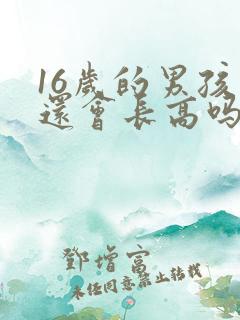 16歲的男孩
還會長高吗
鄧增富
未经同意禁止转载